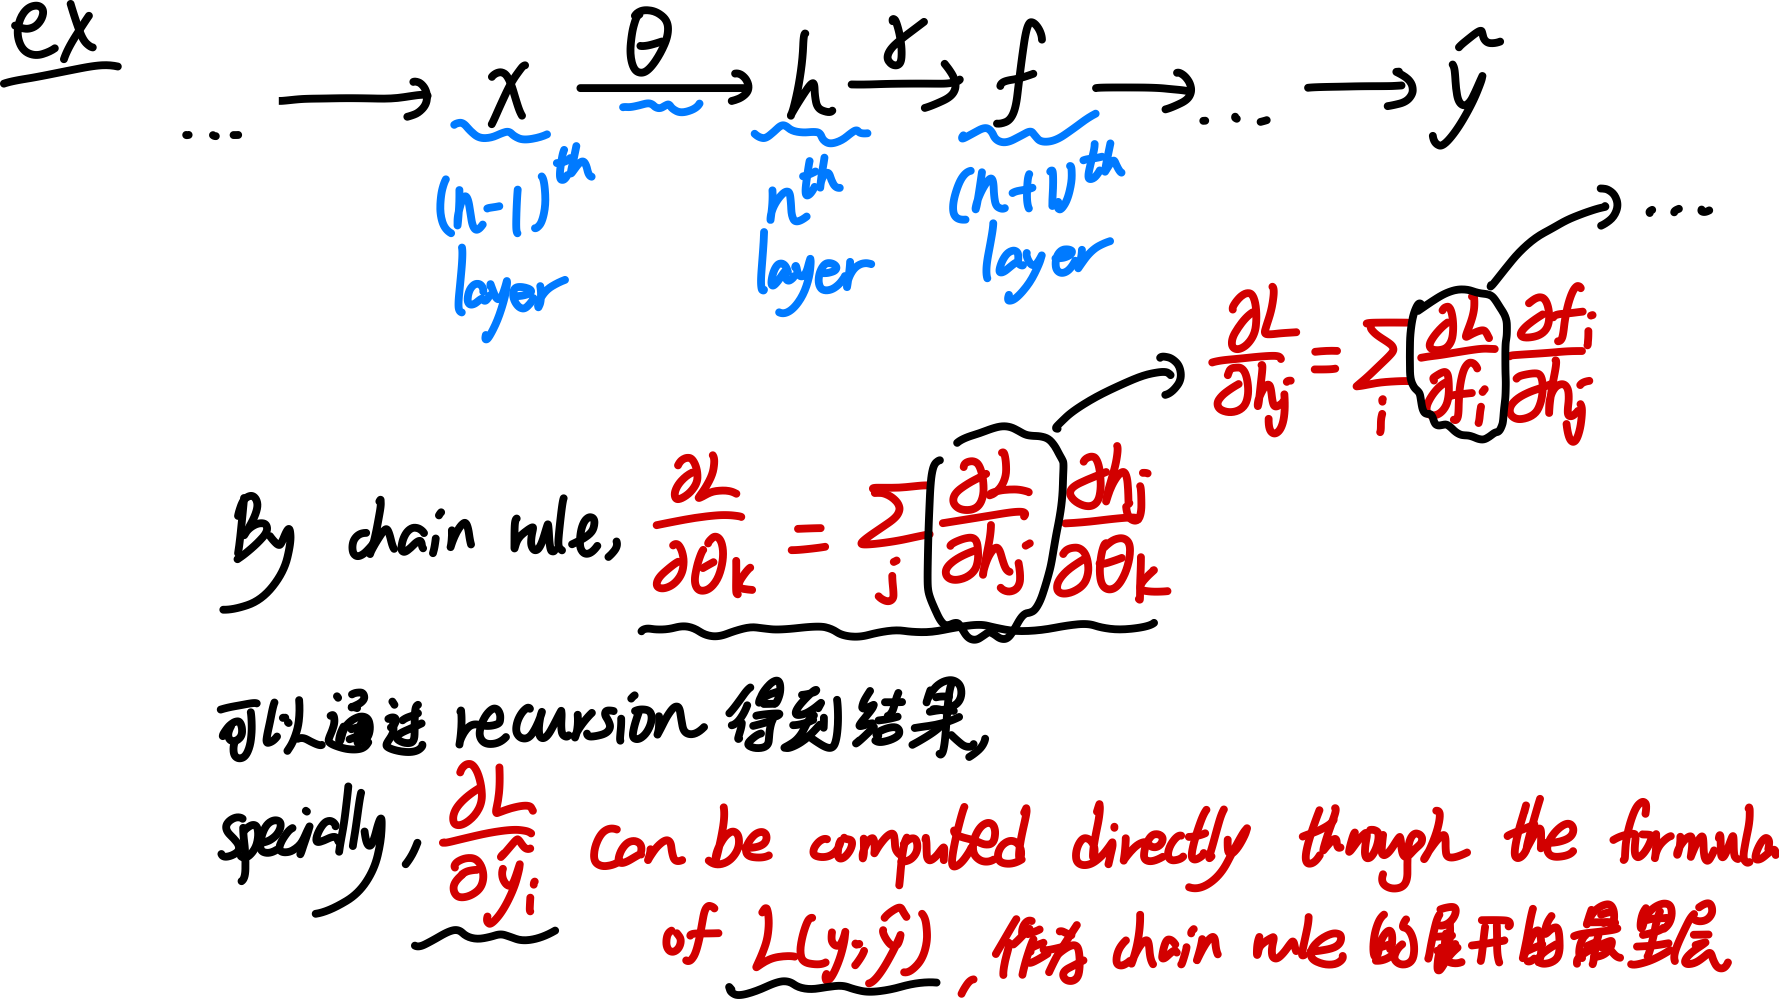 ex
... → x →θ h →γ f → ... → ŷ
(n-1)th layer
nth layer
(n+1)th layer
∂L/∂hj = Σi ∂L/∂fi ∂fi/∂hj → ...
By chain rule, ∂L/∂θk = Σj ∂L/∂hj ∂hj/∂θk
可以通过 recursion 得到结果,
specially, ∂L/∂ŷi can be computed directly through the formula
of L(y,ŷ), 作为 chain rule 的展开的最里层